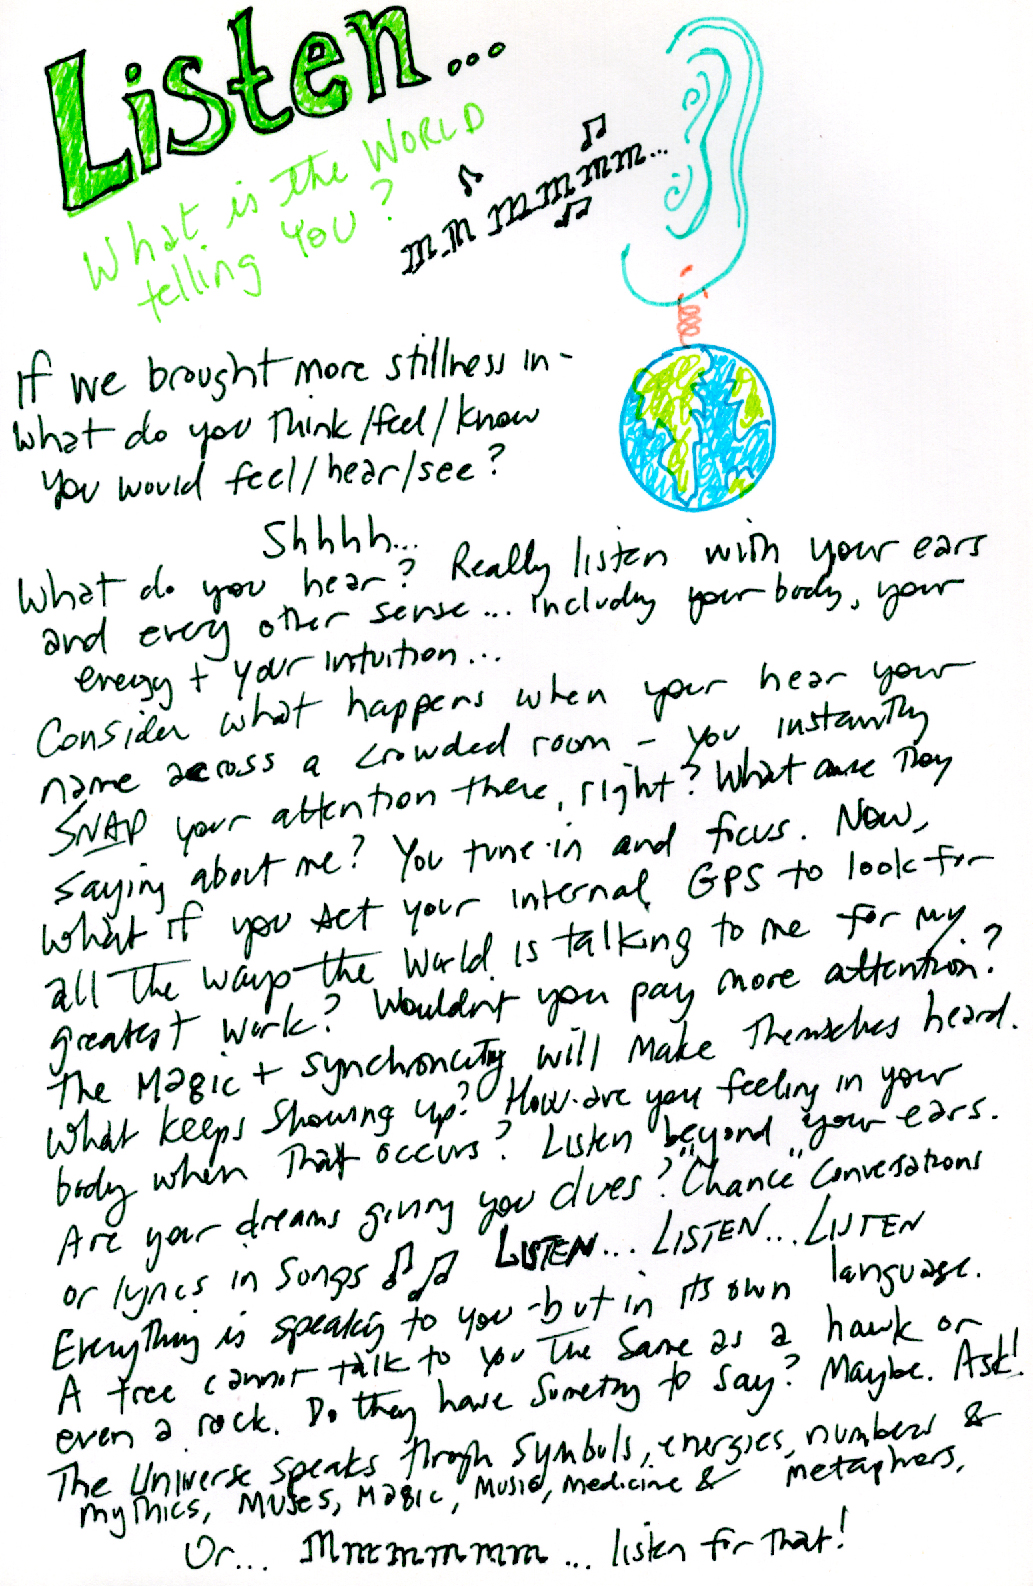 Listen...
What is the WORLD
telling YOU?
mm mmmmm...
If we brought more stillness in -
What do you think/feel/know
you would feel/hear/see?
Shhhh...
What do you hear? Really listen with your ears
and every other sense... including your body, your
energy + your intuition...
Consider what happens when your hear your
name across a crowded room - you instantly
SNAP your attention there, right? What are they
saying about me? You tune in and focus. Now,
What if you set your internal GPS to look for
all the ways the World is talking to me for my
greatest work? Wouldn't you pay more attention?
The Magic + synchronicity will make themselves heard.
What keeps showing up? How are you feeling in your
body when that occurs? Listen beyond your ears.
Are your dreams giving you clues? "Chance" Conversations
or lyrics in songs LISTEN... LISTEN... LISTEN
Everything is speaking to you - but in its own language.
A tree cannot talk to you the same as a hawk or
even a rock. Do they have something to say? Maybe. Ask!
The Universe speaks through symbols, energies, numbers &
mythics, Muses, Magic, Music, medicine & metaphors,
Or... Mmmmmmm... listen for that!